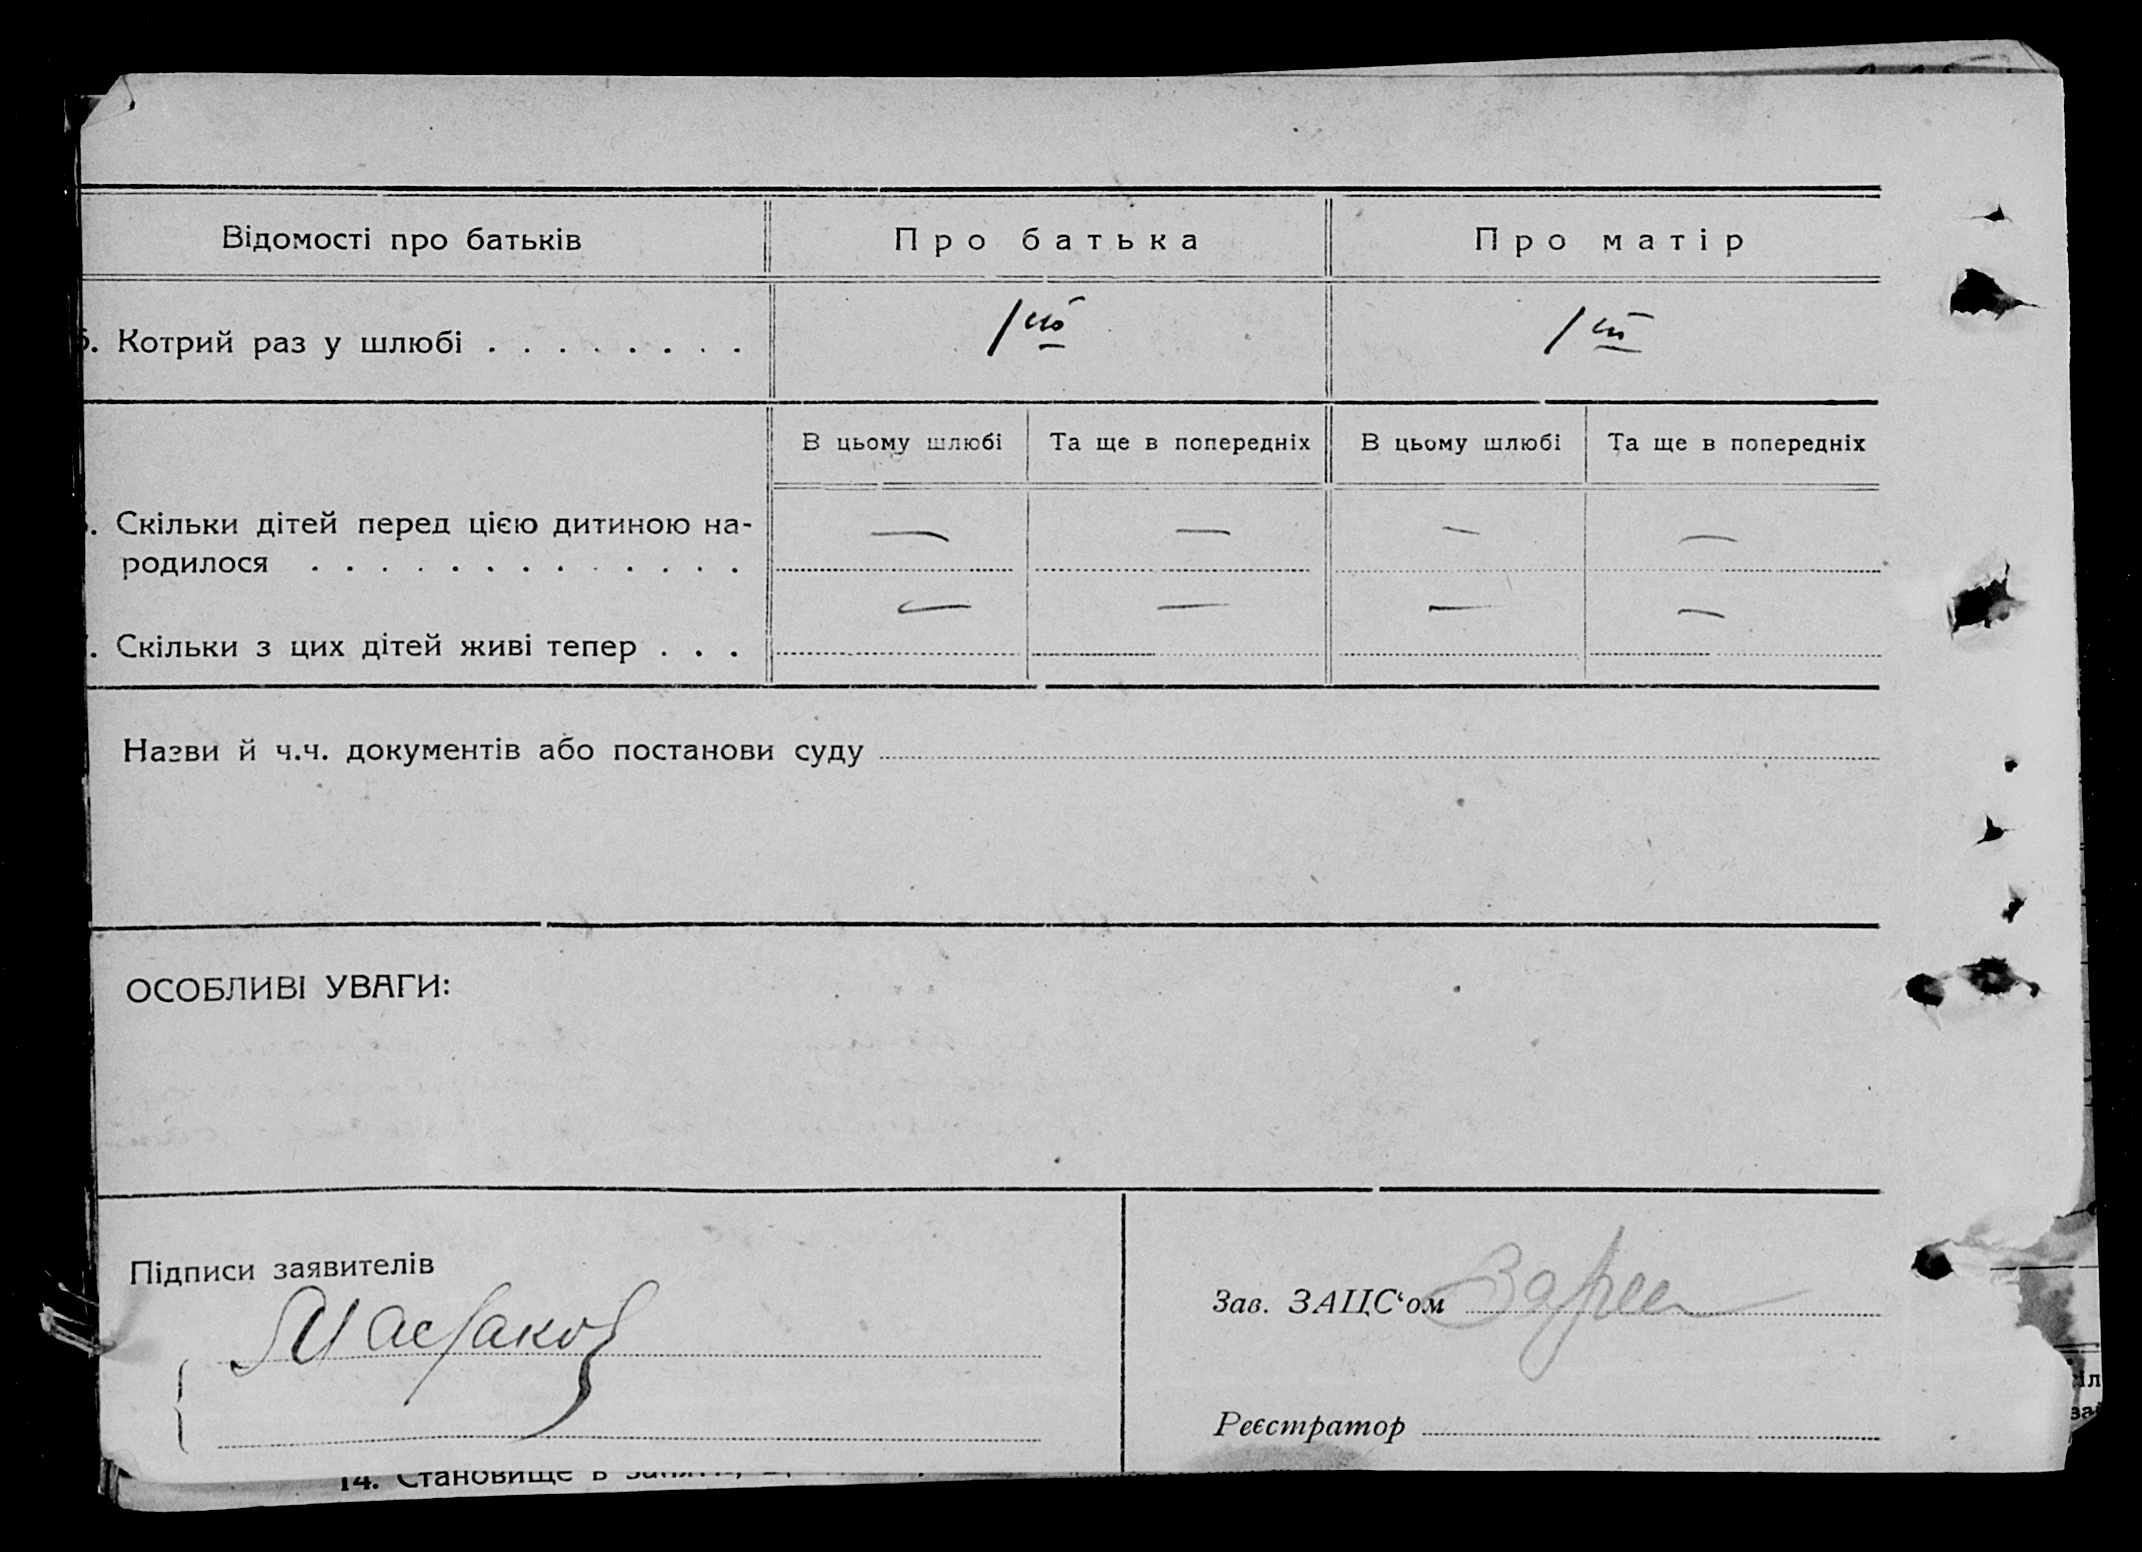 Відомості про батьків
Про батька
Про матір
Котрий раз у шлюбі . . . . . . . .
1ий
1ий
В цьому шлюбі
Та ще в попередніх
В цьому шлюбі
Та ще в попередніх
Скільки дітей перед цією дитиною на-
— — — —
родилося . . . . . . . . . . . . .
— — — —
Скільки з цих дітей живі тепер . . .
Назви й ч.ч. документів або постанови суду
ОСОБЛИВІ УВАГИ:
Підписи заявителів
Зав. ЗАЦС‘ом
Реєстратор
14. Становище в